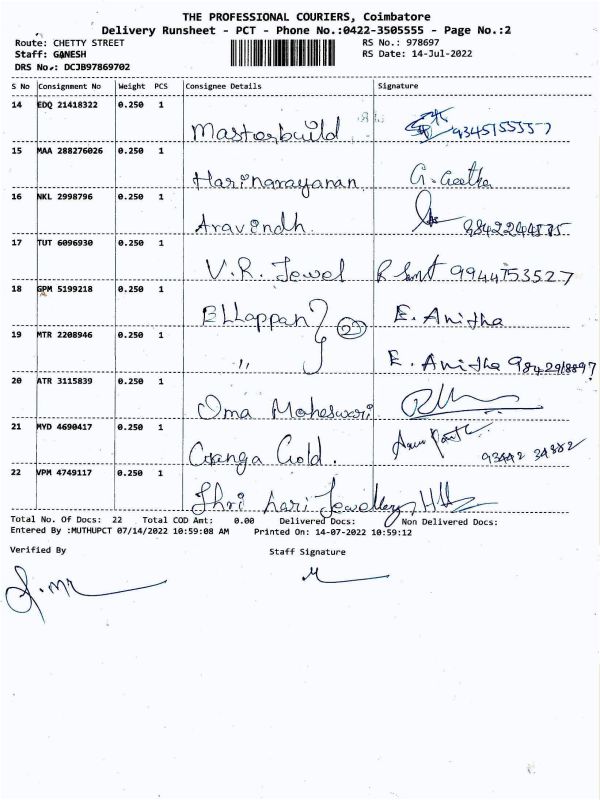 THE PROFESSIONAL COURIERS, Coimbatore
Delivery Runsheet - PCT - Phone No.:0422-3505555 - Page No.:2
Route: CHETTY STREET RS No.: 978697
Staff: GANESH RS Date: 14-Jul-2022
DRS No.: DCJB97869702
S No Consignment No Weight PCS Consignee Details Signature
14 EDQ 21418322 0.250 1
Masterbuild
15 MAA 288276026 0.250 1
Harinarayanan G. Geetha
16 NKL 2998796 0.250 1
Aravindh.
17 TUT 6096930 0.250 1
V.R. Jewel 9944753527
18 GPM 5199218 0.250 1
Ellappan (2) E. Anitha
19 MTR 2208946 0.250 1
,, E. Anitha
20 ATR 3115839 0.250 1
Uma Maheswari
21 MYD 4690417 0.250 1
Ganga Gold. 93442 34882
22 VPM 4749117 0.250 1
Shri hari Jewellery
Total No. Of Docs: 22 Total COD Amt: 0.00 Delivered Docs: Non Delivered Docs:
Entered By :MUTHUPCT 07/14/2022 10:59:08 AM Printed On: 14-07-2022 10:59:12
Verified By Staff Signature